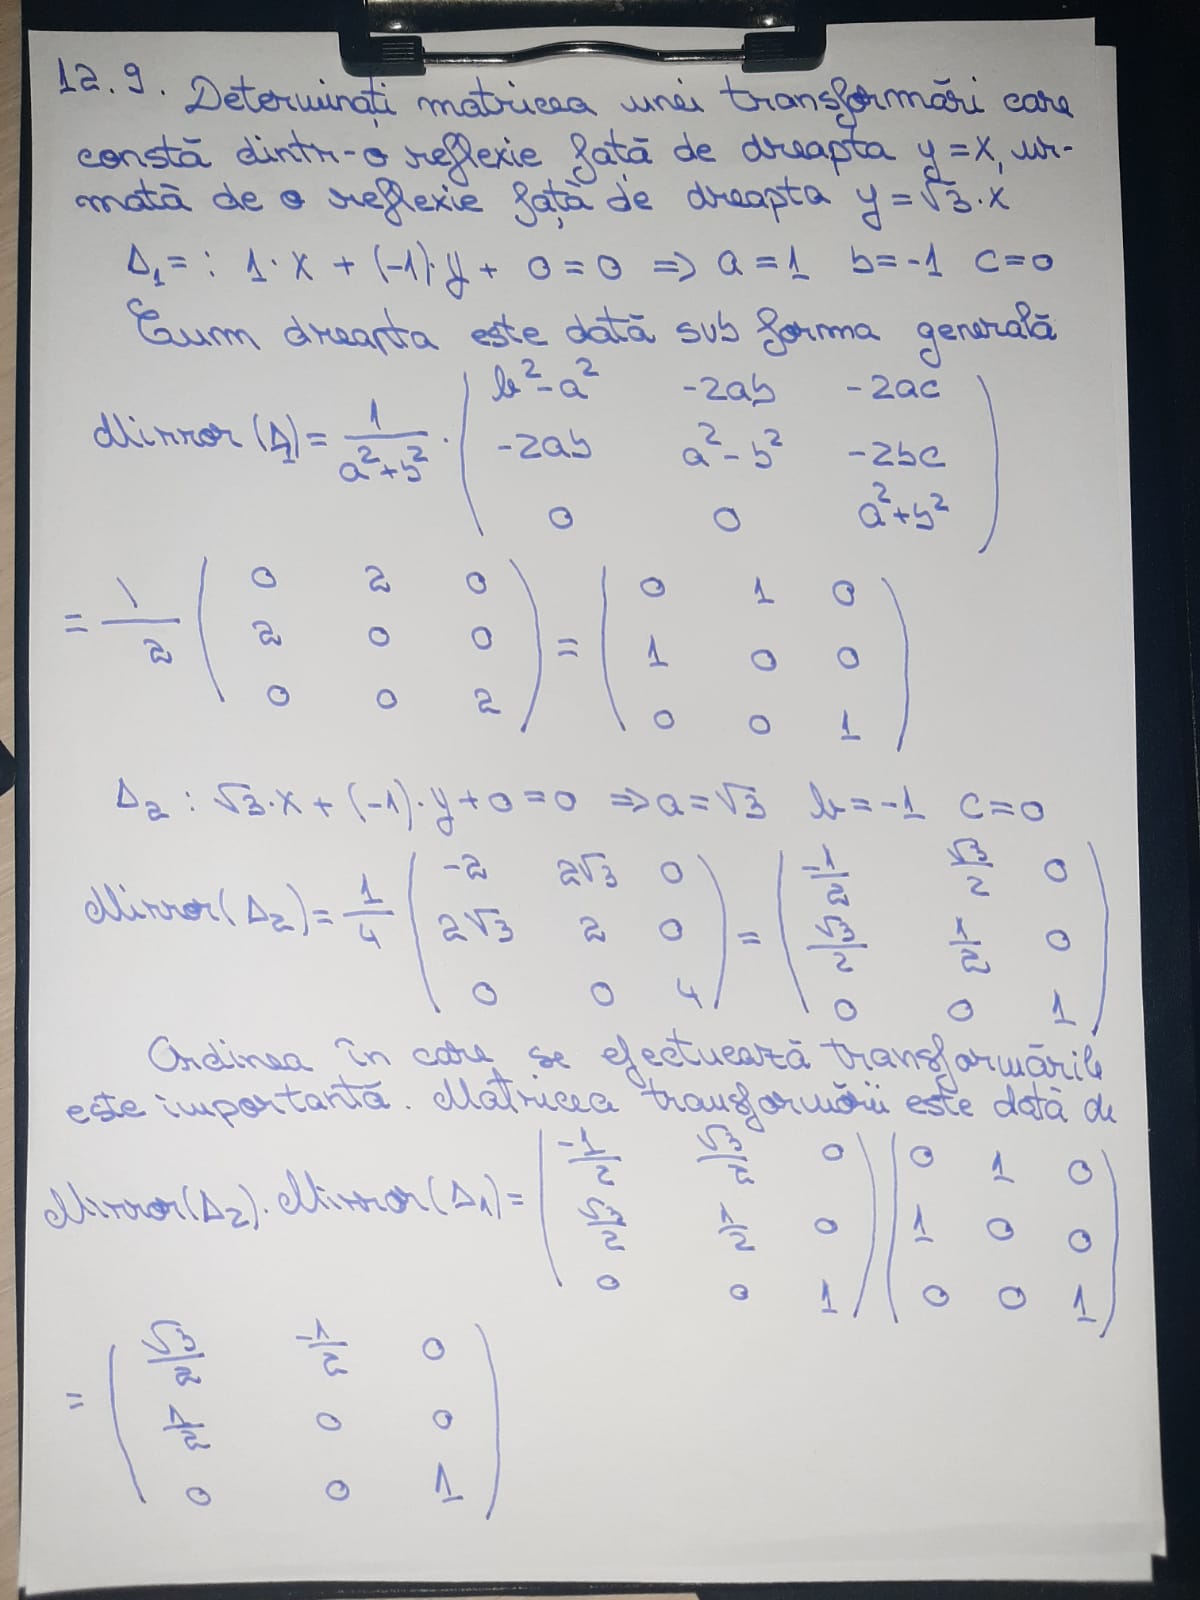 12.9. Determinați matricea unei transformări care
constă dintr-o reflexie față de dreapta y = x, ur-
mată de o reflexie față de dreapta y = √3·x
Δ₁ = : 1·x + (-1)·y + 0 = 0 => a = 1 b = -1 c = 0
Cum dreapta este dată sub forma generală
Mirror(Δ₁) = 1/(a²+b²) · ( b²-a² -2ab -2ac
-2ab a²-b² -2bc
0 0 a²+b² )
= 1/2 ( 0 2 0 ) = ( 0 1 0 )
( 2 0 0 ) ( 1 0 0 )
( 0 0 2 ) ( 0 0 1 )
Δ₂ : √3·x + (-1)·y + 0 = 0 => a = √3 b = -1 c = 0
Mirror(Δ₂) = 1/4 ( -2 2√3 0 ) = ( -1/2 √3/2 0 )
( 2√3 2 0 ) ( √3/2 1/2 0 )
( 0 0 4 ) ( 0 0 1 )
Ordinea în care se efectuează transformările
este importantă. Matricea transformării este dată de
Mirror(Δ₂)·Mirror(Δ₁) = ( -1/2 √3/2 0 ) ( 0 1 0 )
( √3/2 1/2 0 ) ( 1 0 0 )
( 0 0 1 ) ( 0 0 1 )
= ( √3/2 -1/2 0 )
( 1/2 0 0 )
( 0 0 1 )